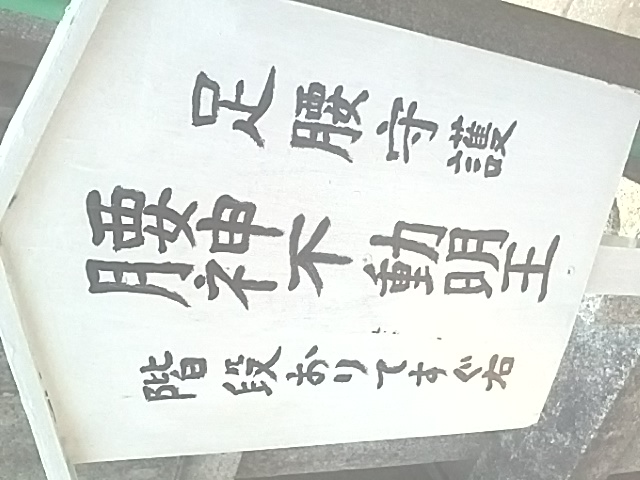 足腰守護
腰神不動明王
階段おりてすぐ右